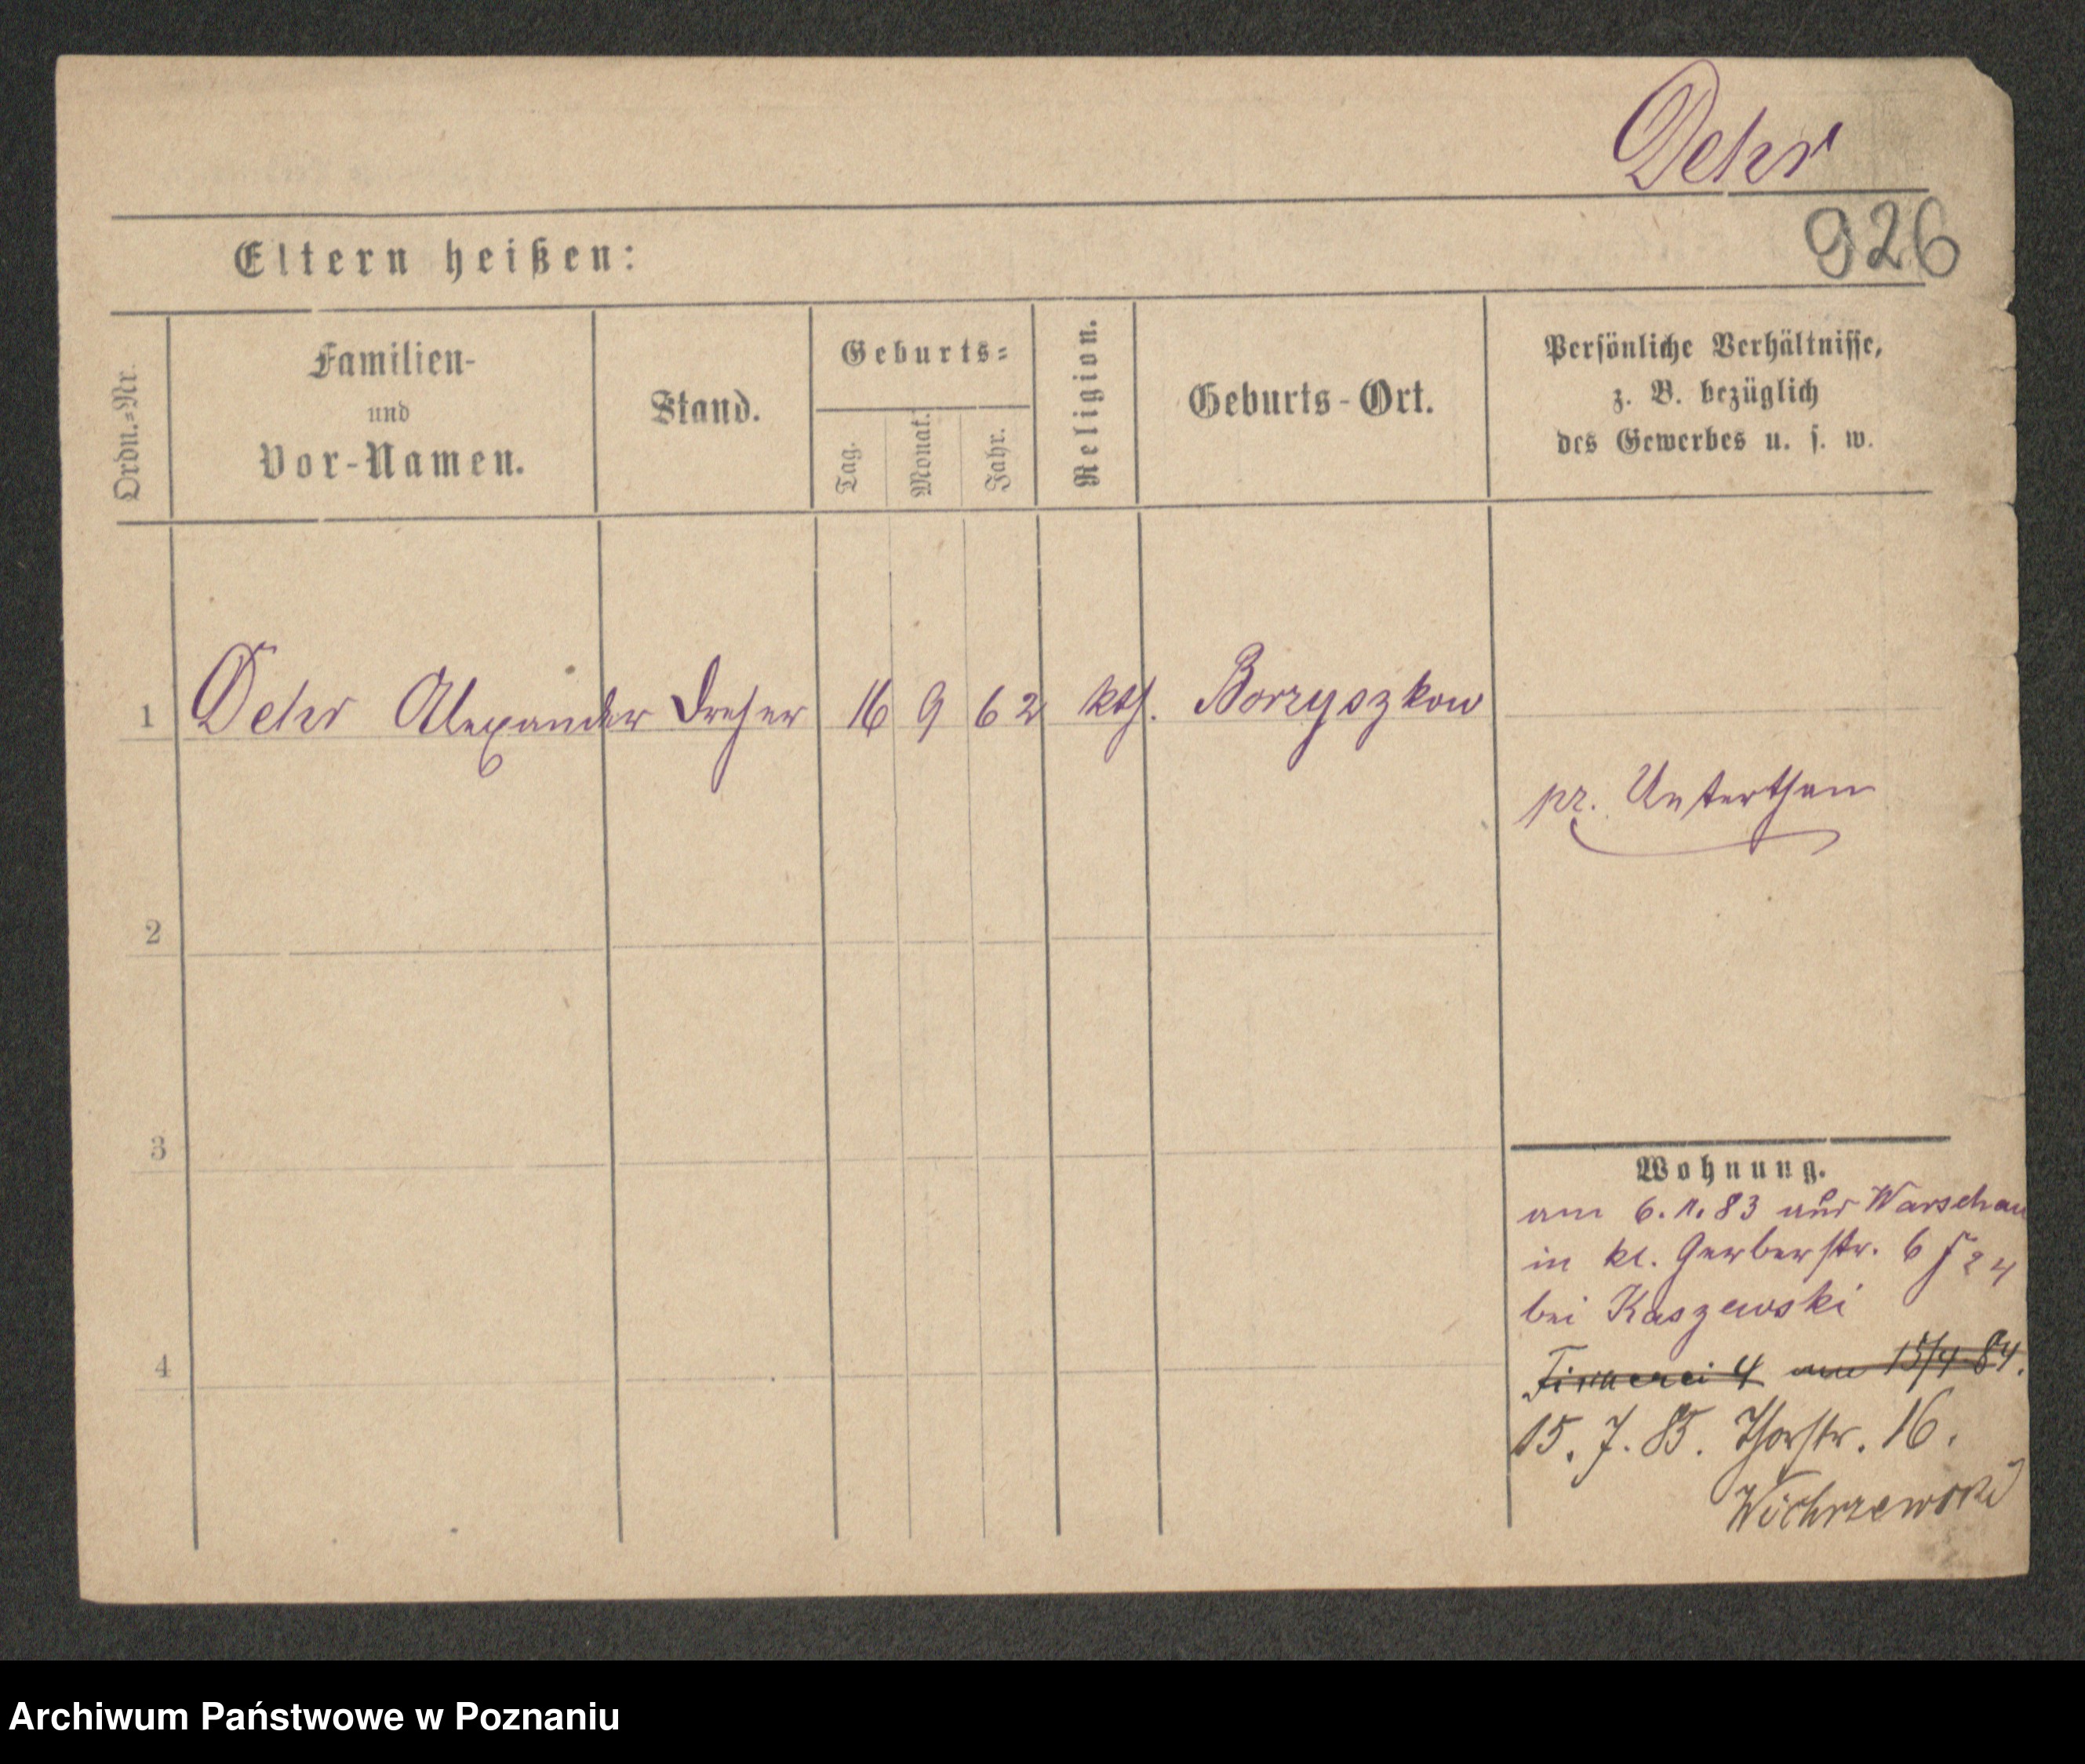 Dehr
926
Eltern heißen:
Ordn.=Nr.
Familien-
und
Vor-Namen.
Stand.
Geburts=
Tag.
Monat.
Jahr.
Religion.
Geburts-Ort.
Persönliche Verhältnisse,
z. B. bezüglich
des Gewerbes u. s. w.
1 Dehr Alexander Dreher 16 9 62 kth. Borzyszkow
pr. Unterthan
2
3
4
Wohnung.
am 6.1.83 aus Warschau
in kl. Gerberstr. 6
bei Kaszewski
am 15/4 84.
15. 7. 85. Thorstr. 16.
Wichrzewski
Archiwum Państwowe w Poznaniu